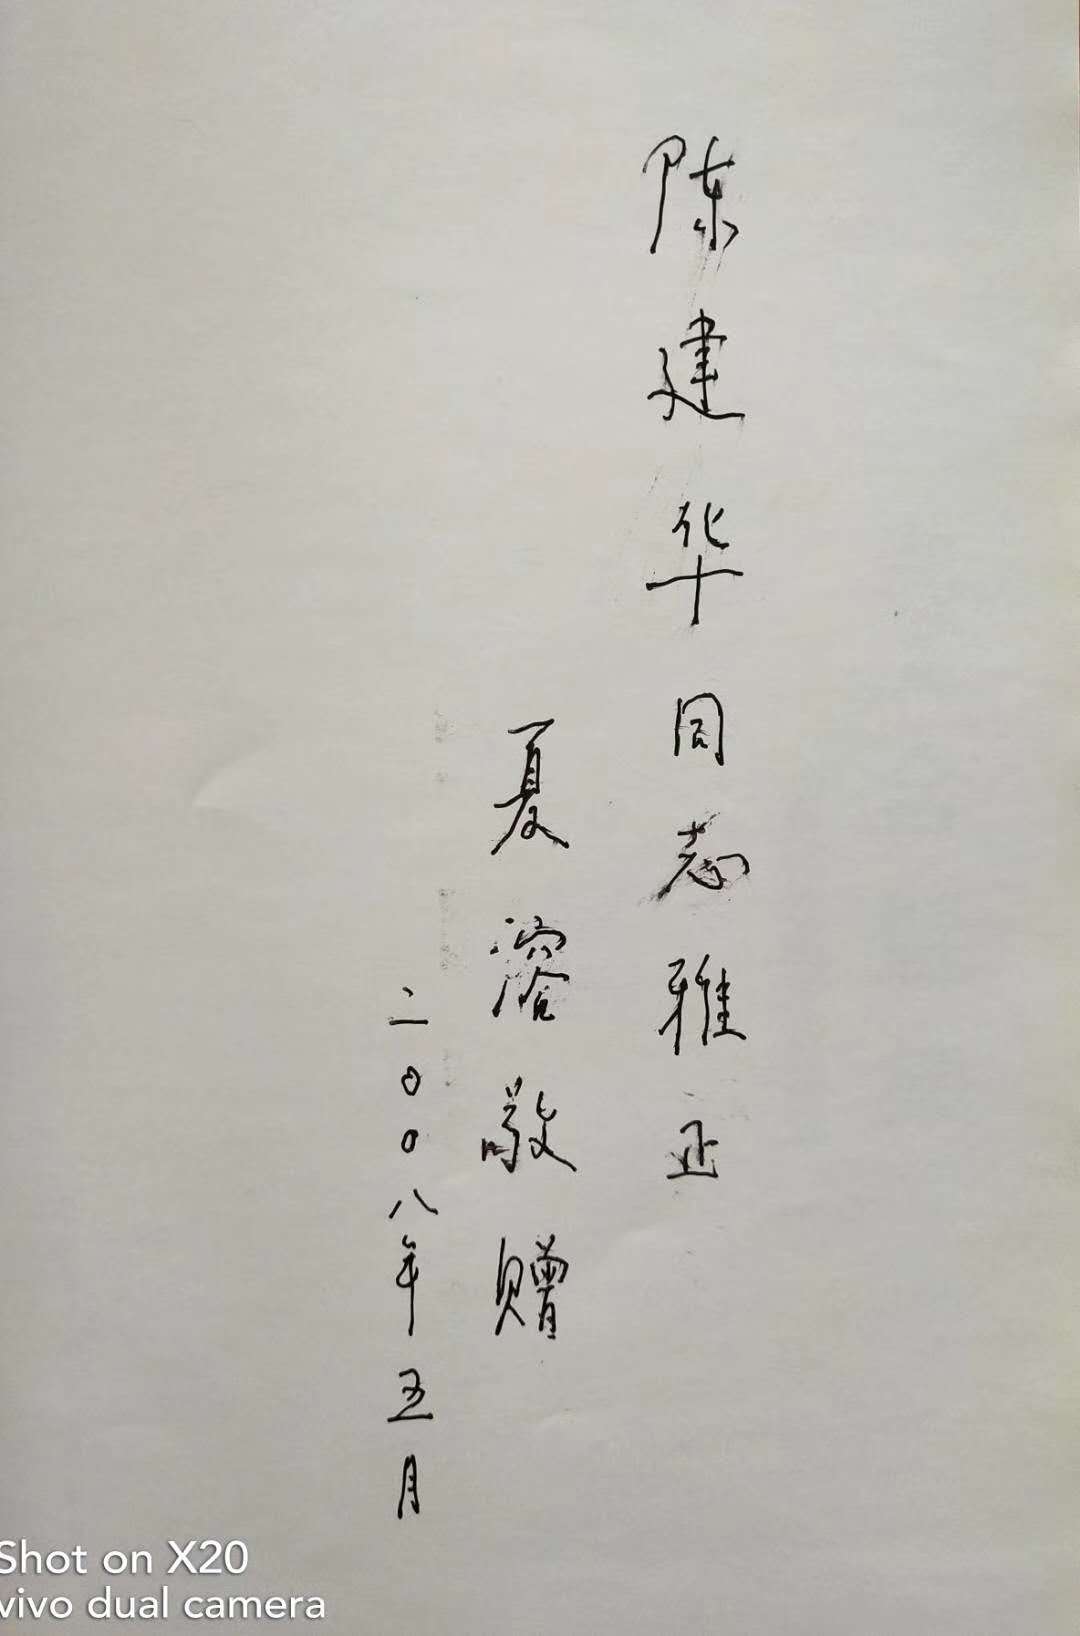 陈建华同志雅正
夏蓉敬赠
二00八年五月
Shot on X20
vivo dual camera